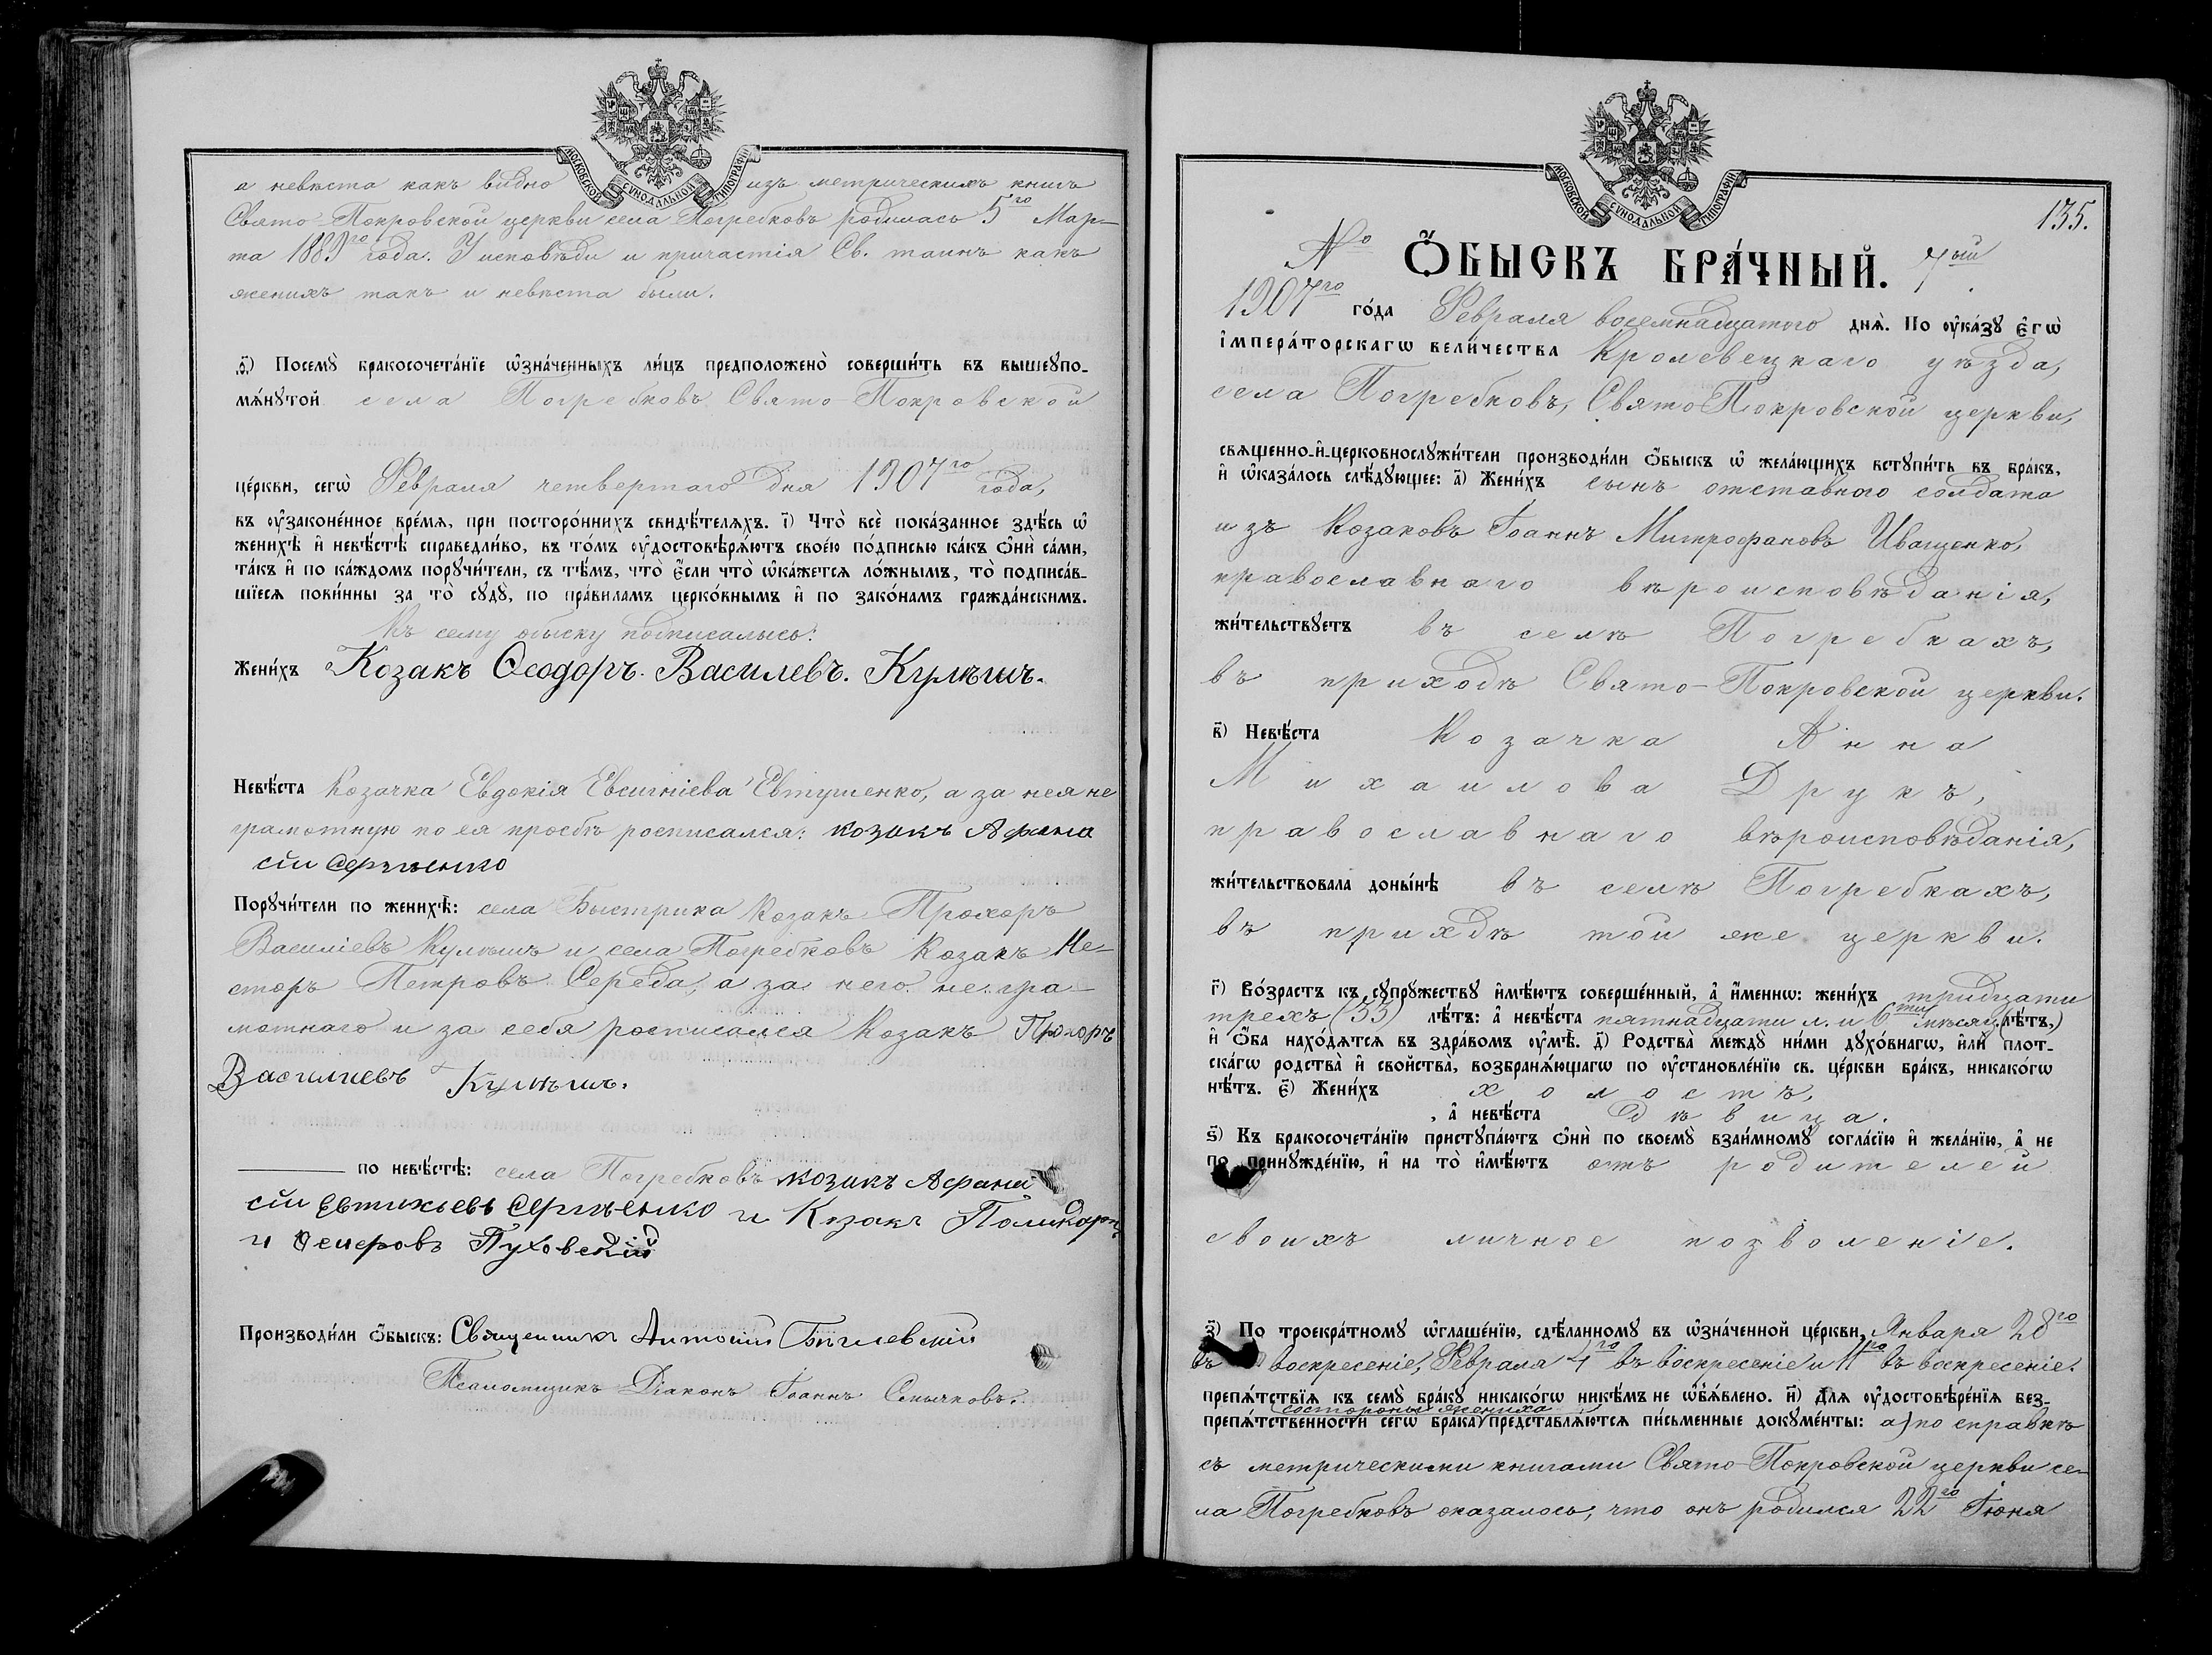 МОСКОВСКОЙ СѴНОДАЛЬНОЙ ТИПОГРАФІИ
а невѣста какъ видно изъ метрическихъ книгъ
Свято-Покровской церкви села Погребковъ родилась 5го Мар-
та 1889го года. У исповѣди и причастія Св. таинъ какъ
женихъ такъ и невѣста были.
ѳ҃) Посемꙋ̀ бракосочета́нїе ѡ҆зна́ченныхъ ли́цъ предположено̀ соверши́ть въ вышеꙋпо-
мѧ́нꙋтой села Погребковъ Свято-Покровской
це́ркви, сегѡ̀ Февраля четвертаго дня 1907го года,
въ ᲂу҆законе́нное вре́мѧ, при посторо́ннихъ свидѣ́телѧхъ. і҃) Что̀ всѐ пока́занное здѣ́сь ѡ҆
женихѣ̀ и҆ невѣ́стѣ справедли́во, въ то́мъ ᲂу҆достовѣрѧ́ютъ свое́ю по́дписью ка́къ ѻ҆нѝ са́ми,
та́къ и҆ по ка́ждомъ порꙋчи́тели, съ тѣ́мъ, что̀ є҆́сли что̀ ѡ҆ка́жетсѧ ло́жнымъ, то̀ подписа́в-
шїесѧ пови́нны за то̀ сꙋдꙋ̀, по пра́виламъ церко́внымъ и҆ по зако́намъ гражда́нскимъ.
Къ сему обыску подписались:
Жени́хъ Козакъ Ѳеодоръ. Василевъ. Кулѣшъ.
Невѣ́ста Козачка Евдокія Евсигніева Евтушенко, а за нея не
грамотную по ея просьбѣ росписался: козакъ Афана
сій Сергѣенко
Порꙋчи́тели по женихѣ̀: села Быстрика Козакъ Прохоръ
Василіевъ Кулѣшъ и села Погребковъ Козакъ Не-
сторъ Петровъ Середа, а за него негра-
мотнаго и за себя росписался Козакъ Прохоръ
Василиевъ Кулѣшъ.
по невѣ́стѣ: села Погребковъ козакъ Афана
сій Евтихьевъ Сергѣенко и Козакъ Поликарп
Пуховскій
Производи́ли ѻ҆́быскъ: Священникъ Антоній
Псаломщикъ Діаконъ Іоаннъ Смычковъ.
МОСКОВСКОЙ СѴНОДАЛЬНОЙ ТИПОГРАФІИ
135.
№ Ѻ҆́БЫСКЪ БРА́ЧНЫЙ. 7ый
1907го го́да Февраля восемнадцатаго днѧ̀. По ᲂу҆ка́зꙋ є҆гѡ̀
і҆мпера́торскагѡ вели́чества Кролевецкаго уѣзда,
села Погребковъ, Свято-Покровской церкви,
свѧще́нно-и҆-церковнослꙋжи́тели производи́ли ѻ҆́быскъ ѡ҆ жела́ющихъ встꙋпи́ть въ бра́къ,
и҆ ѡ҆каза́лось слѣ́дꙋющее: а҃) Жени́хъ сынъ отставного солдата
изъ Козаковъ Іоаннъ Митрофановъ Иващенко,
православнаго вѣроисповѣданія,
жи́тельствꙋетъ въ селѣ Погребкахъ,
въ приходѣ Свято-Покровской церкви.
в҃) Невѣ́ста Козачка Анна
Михаилова Друкъ,
православнаго вѣроисповѣданія,
жи́тельствовала доны́нѣ въ селѣ Погребкахъ,
въ прихдѣ той же церкви.
г҃) Во́зрастъ къ сꙋпрꙋ́жествꙋ и҆мѣ́ютъ соверше́нный, а҆ и҆́менно: жени́хъ тридцати
трехъ (33) лѣ́тъ: а҆ невѣ́ста пятнадцати л. и 6ти мѣсяц. (лѣ́тъ,)
и҆ ѻ҆́ба нахо́дѧтсѧ въ здра́вомъ ᲂу҆мѣ̀. д҃) Родства̀ междꙋ ни́ми дꙋхо́внагѡ, и҆лѝ плот-
ска́гѡ родства̀ и҆ свойства̀, возбранѧ́ющагѡ по ᲂу҆становле́нїю св. це́ркви бра́къ, никако́гѡ
нѣ́тъ. є҃) Жени́хъ холостъ,
, а҆ невѣ́ста дѣвица.
ѕ҃) Къ бракосочета́нїю пристꙋпа́ютъ ѻ҆нѝ по своемꙋ̀ взаи́мномꙋ согла́сїю и҆ жела́нїю, а҆ не
по принꙋжде́нїю, и҆ на то̀ и҆мѣ́ютъ отъ родителей
своихъ личное позволеніе.
з҃) По троекра́тномꙋ ѡ҆глаше́нїю, сдѣ́ланномꙋ въ ѡ҆зна́ченной це́ркви, Января 28го
въ воскресеніе, Февраля 4го въ воскресеніе и 11го въ воскресеніе.
препѧ́тствїѧ къ семꙋ̀ бра́кꙋ никако́гѡ никѣ́мъ не ѡ҆б̾ѧ́влено. и҃) Длѧ ᲂу҆достовѣре́нїѧ без-
состороны жениха
препѧ́тственности сегѡ̀ бра́ка) представлѧ́ютсѧ пи́сьменные докꙋме́нты: а) по справкѣ
съ метрическими книгами Свято-Покровской церкви се-
ла Погребковъ оказалось, что онъ родился 22го Іюня